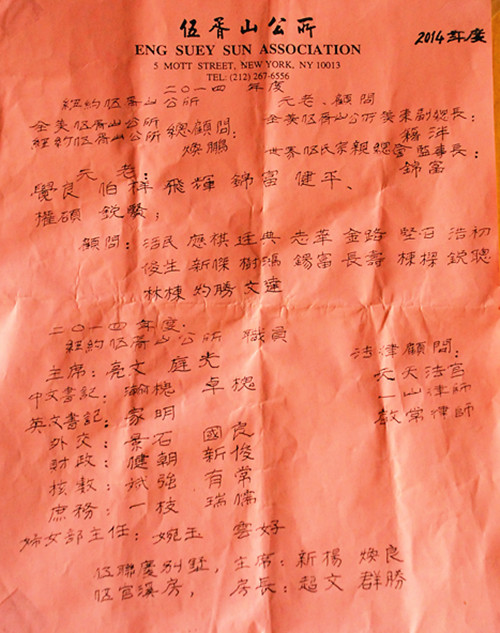 伍胥山公所
2014年度
ENG SUEY SUN ASSOCIATION
5 MOTT STREET, NEW YORK, NY 10013
TEL: (212) 267-6556
二〇一四 年度
紐約伍胥山公所 元老、顧問
全美伍胥山公所 全美伍胥山公所 副總長:
紐約伍胥山公所 總顧問: 煥鵬
世界伍氏宗親總會 監事長: 錦富
元老:
覺良 伯祥 飛輝 錦富 健平、
權碩 銳賢;
顧問: 活民 應棋 廷典 志革 金路 堅石 浩初
俊生 新傑 樹鴻 錫富 長壽 棟樑 銳聰
林棟 灼勝 文達
二〇一四年度:
紐約伍胥山公所 職員
主席: 亮文 庭光
法律顧問:
天天法官
一山律師
教常律師
中文書記: 瀚槐 卓槐
英文書記: 家明
外交: 景石 國良
財政: 健朝 新俊
核數: 斌強 有常
庶務: 一枝 瑞儒
婦女部主任: 婉玉 雲好
伍聯慶別墅, 主席: 新楊 煥良
伍官漢房, 房長: 超文 群勝